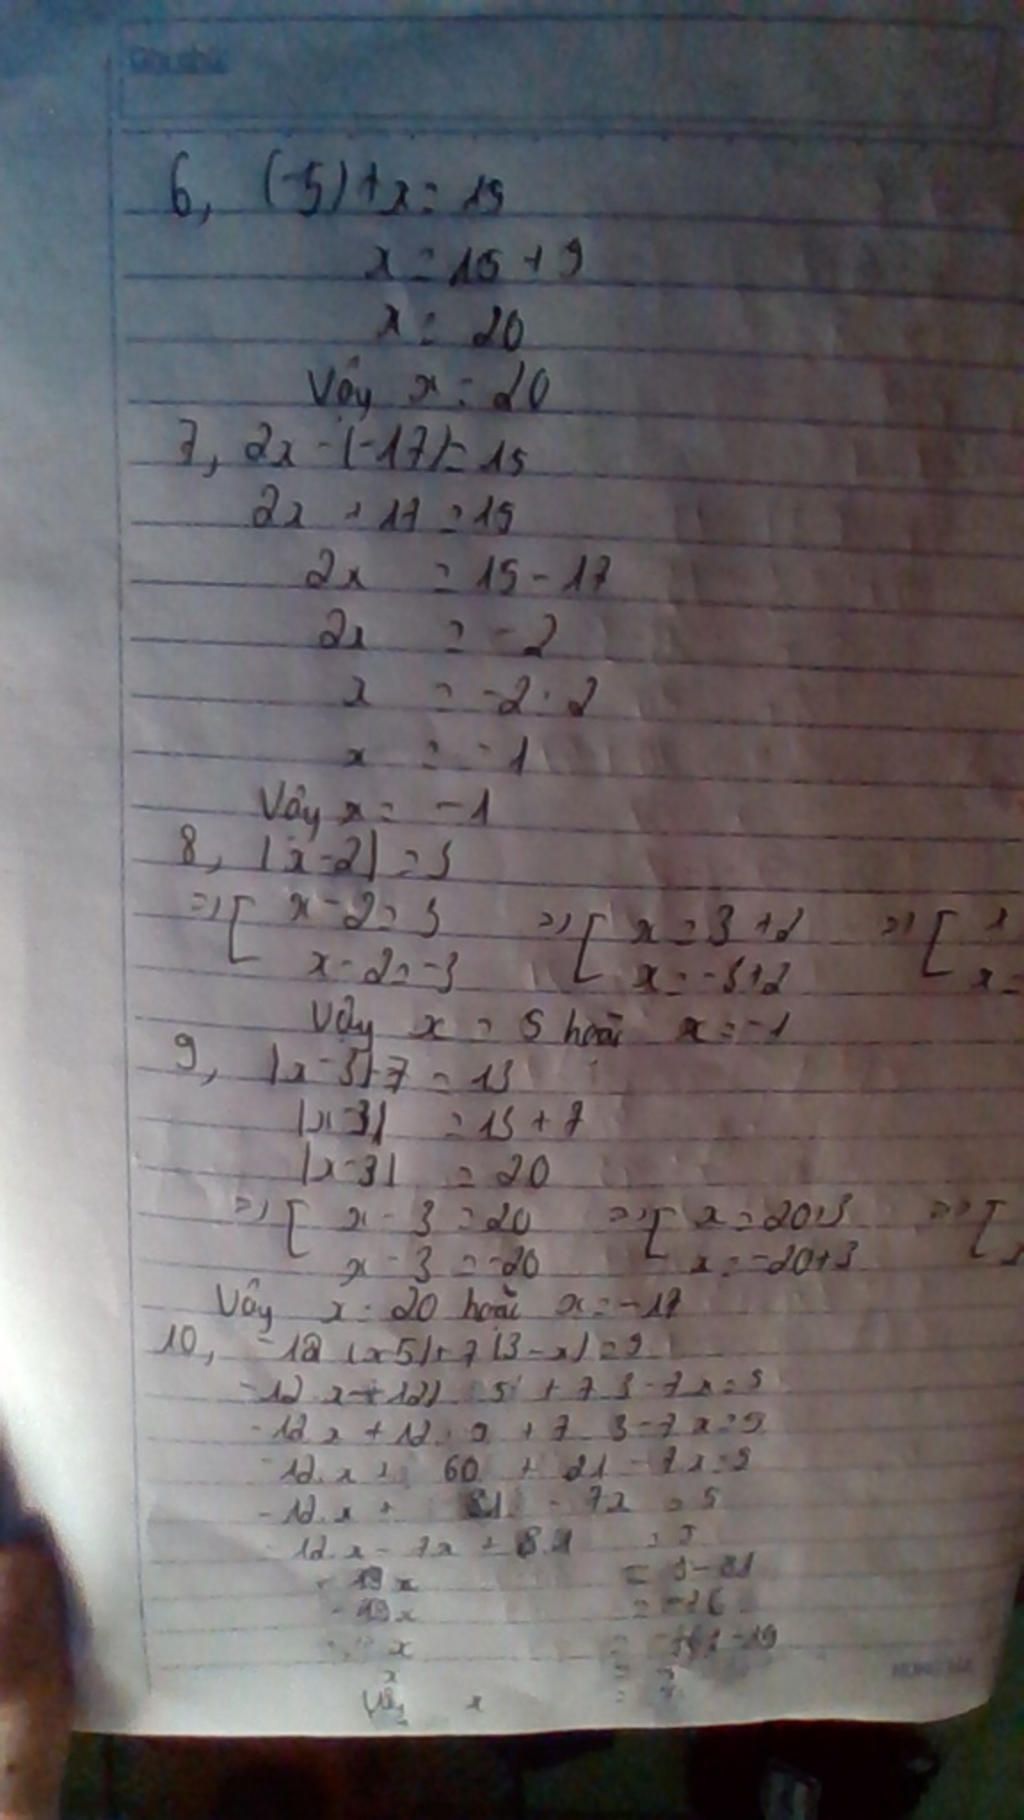 6, (-5) + x = 15
x = 15 + 5
x = 20
Vậy x = 20
7, 2x - (-17) = 15
2x + 17 = 15
2x = 15 - 17
2x = -2
x = -2 : 2
x = -1
Vậy x = -1
8, |x - 2| = 3
=> [ x - 2 = 3 => [ x = 3 + 2 => [ x
x - 2 = -3 x = -3 + 2 x =
Vậy x = 5 hoặc x = -1
9, |x - 3| - 7 = 13
|x - 3| = 13 + 7
|x - 3| = 20
=> [ x - 3 = 20 => [ x = 20 + 3 => [
x - 3 = -20 x = -20 + 3
Vậy x = 20 hoặc x = -17
10, -12 (x - 5) + 7 (3 - x) = 5
-12 x + 12 . 5 + 7 3 - 7x = 5
-12 x + 60 + 21 - 7x = 5
-12 . x + 81 - 7x = 5
-12 . x - 7x + 81 = 5
-19 x = 5 - 81
-19 x = -76
x
x
Vậy x =